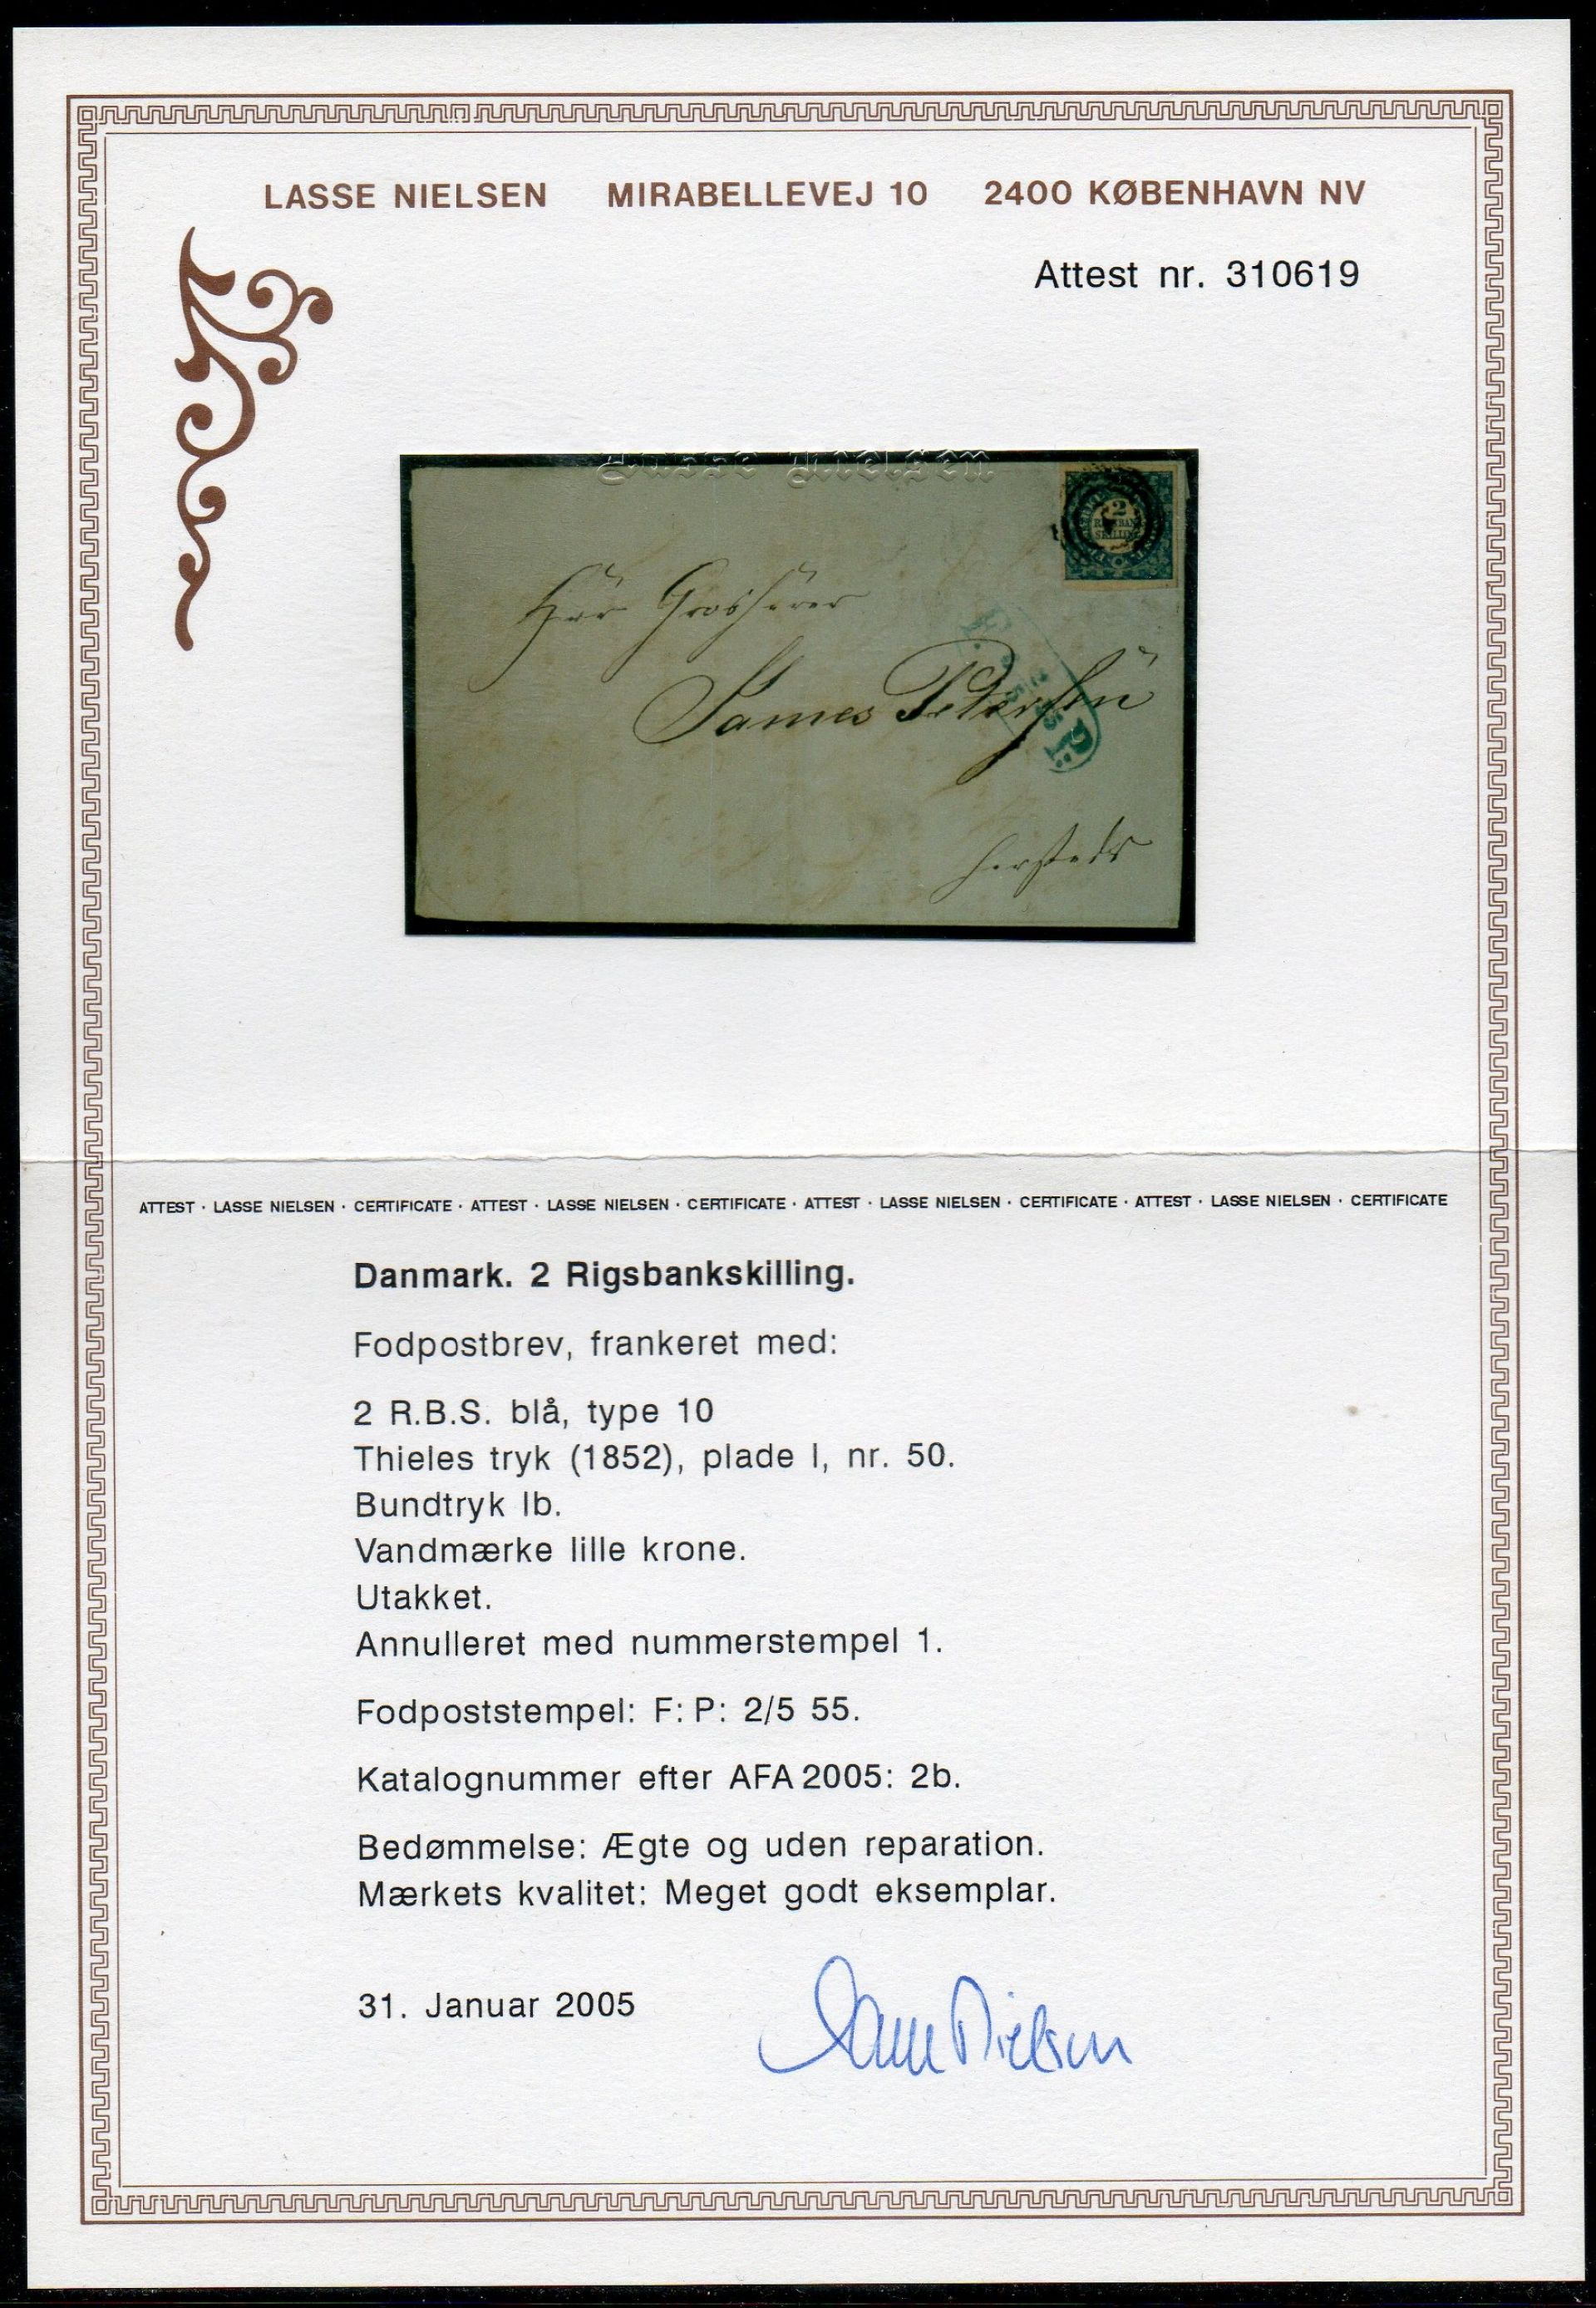 LASSE NIELSEN MIRABELLEVEJ 10 2400 KØBENHAVN NV
Attest nr. 310619
Lasse Nielsen
2
RIGSBANK
SKILLING
1
James Petersen
ATTEST · LASSE NIELSEN · CERTIFICATE · ATTEST · LASSE NIELSEN · CERTIFICATE · ATTEST · LASSE NIELSEN · CERTIFICATE · ATTEST · LASSE NIELSEN · CERTIFICATE
Danmark. 2 Rigsbankskilling.
Fodpostbrev, frankeret med:
2 R.B.S. blå, type 10
Thieles tryk (1852), plade I, nr. 50.
Bundtryk Ib.
Vandmærke lille krone.
Utakket.
Annulleret med nummerstempel 1.
Fodpoststempel: F: P: 2/5 55.
Katalognummer efter AFA 2005: 2b.
Bedømmelse: Ægte og uden reparation.
Mærkets kvalitet: Meget godt eksemplar.
31. Januar 2005
Lasse Nielsen